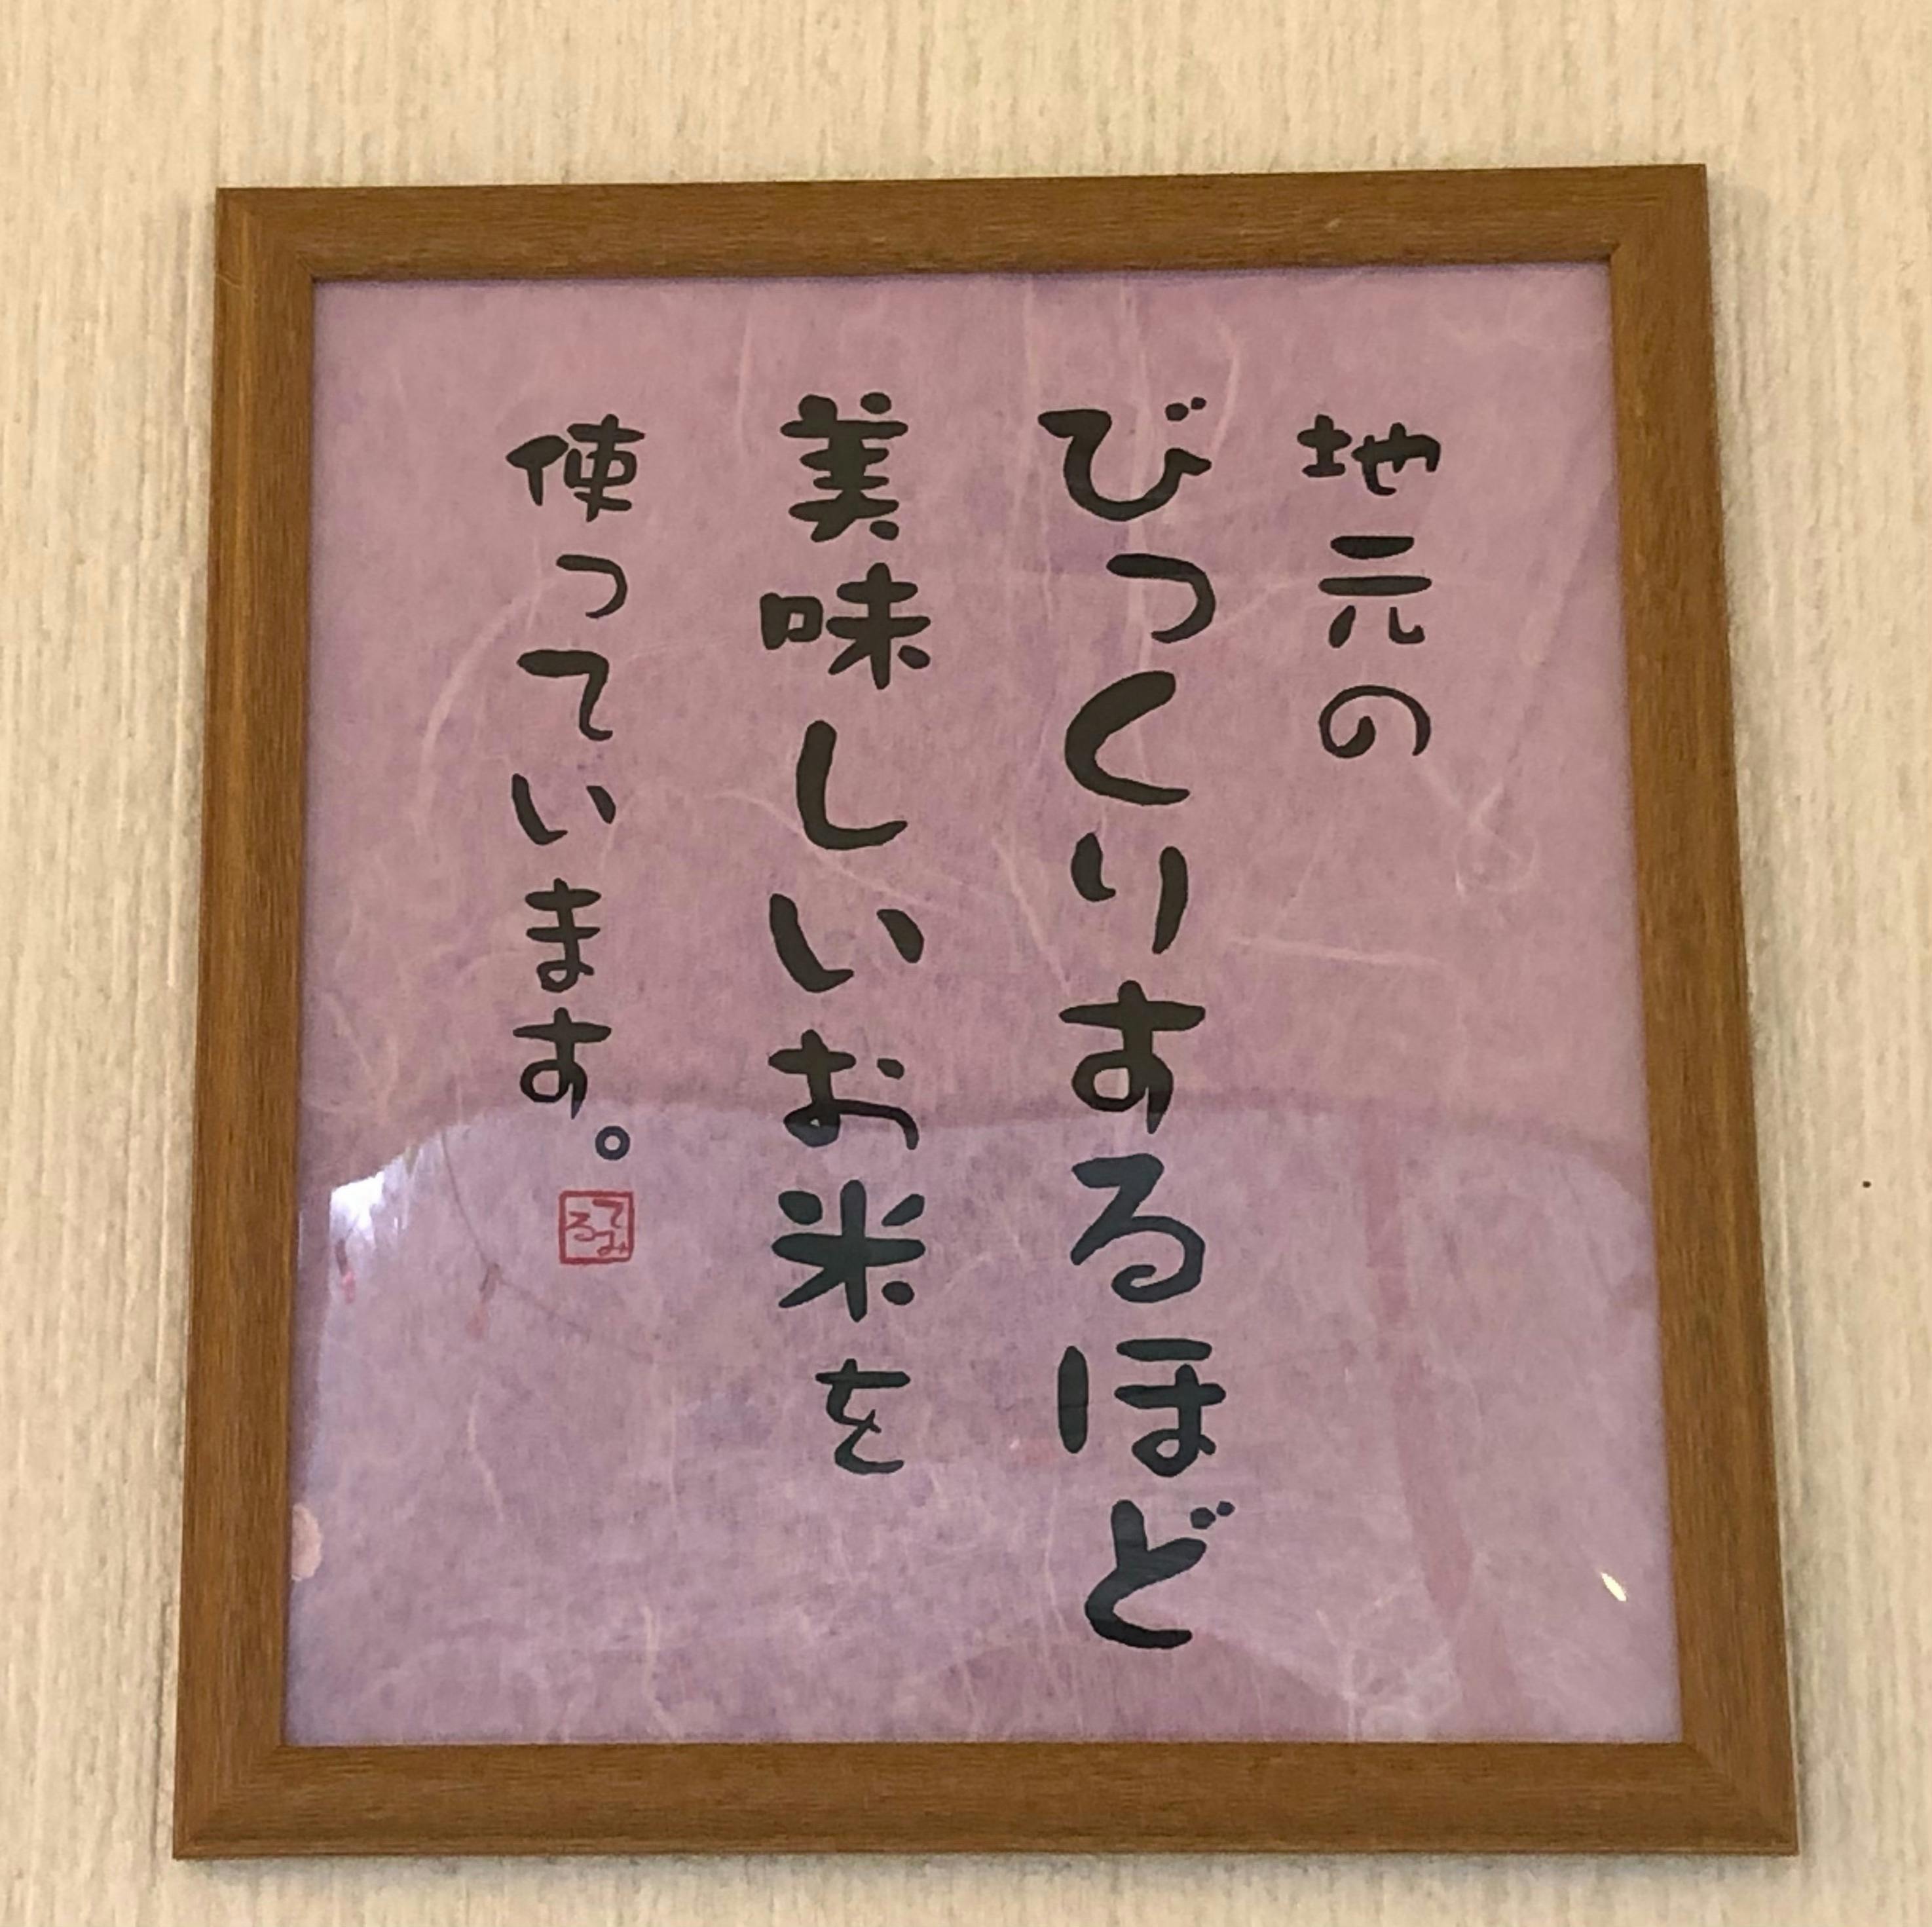 地元の
びっくりするほど
美味しいお米を
使っています。
てるみ